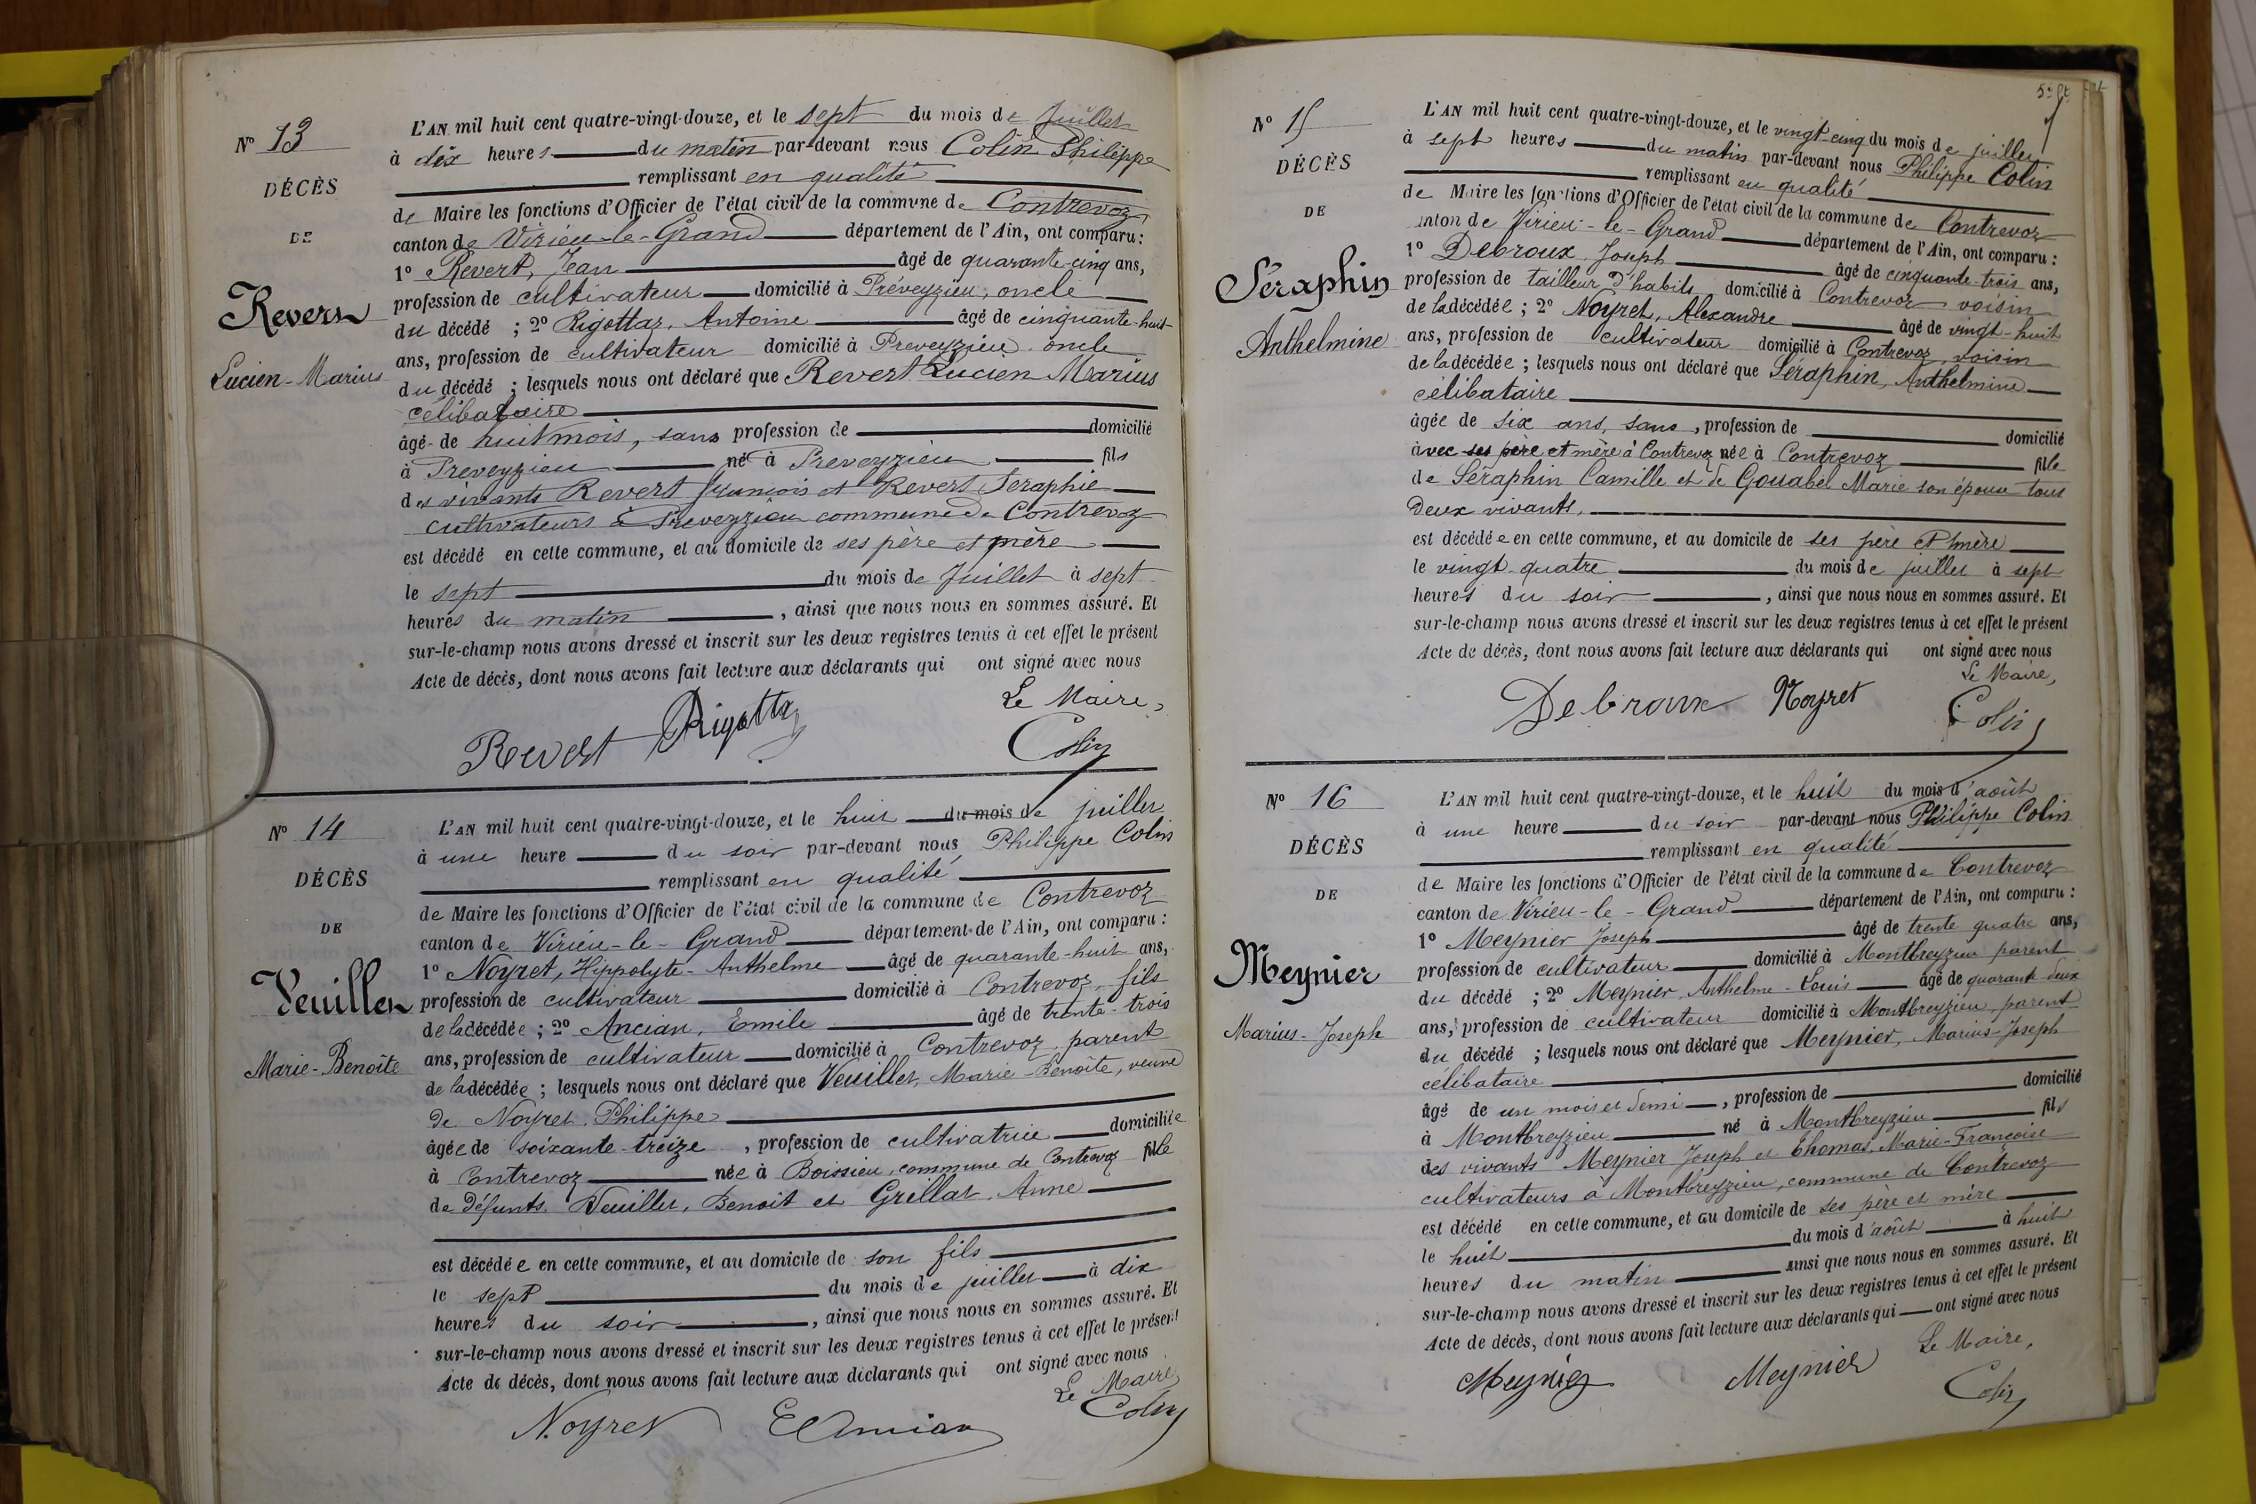 N° 13
DÉCÈS
DE
Revert
Lucien-Marius
L'AN mil huit cent quatre-vingt-douze, et le sept du mois de Juillet
à dix heures du matin par-devant nous Colin Philippe
remplissant en qualité
de Maire les fonctions d'Officier de l'état civil de la commune de Contrevoz
canton de Virieu-le-Grand département de l'Ain, ont comparu :
1° Revert, Jean âgé de quarante-cinq ans,
profession de cultivateur domicilié à Préveyzieu, oncle
du décédé ; 2° Rigottaz, Antoine âgé de cinquante-huit
ans, profession de cultivateur domicilié à Preveyzieu oncle
du décédé ; lesquels nous ont déclaré que Revert Lucien Marius
célibataire
âgé de huit mois, sans profession de domicilié
à Preveyzieu né à Preveyzieu fils
des vivants Revert François et Revert Seraphie
cultivateurs à Preveyzieu commune de Contrevoz
est décédé en cette commune, et au domicile de ses père et mère
le sept du mois de Juillet à sept
heures du matin , ainsi que nous nous en sommes assuré. Et
sur-le-champ nous avons dressé et inscrit sur les deux registres tenus à cet effet le présent
Acte de décès, dont nous avons fait lecture aux déclarants qui ont signé avec nous
Le Maire,
Revert Rigottaz Colin
N° 14
DÉCÈS
DE
Veuillet
Marie-Benoîte
L'AN mil huit cent quatre-vingt-douze, et le huit du mois de juillet
à une heure du soir par-devant nous Philippe Colin
remplissant en qualité
de Maire les fonctions d'Officier de l'état civil de la commune de Contrevoz
canton de Virieu-le-Grand département de l'Ain, ont comparu :
1° Noyret, Hippolyte-Anthelme âgé de quarante-huit ans,
profession de cultivateur domicilié à Contrevoz, fils
de la décédée ; 2° Ancian, Emile âgé de trente-trois
ans, profession de cultivateur domicilié à Contrevoz parent
de la décédée ; lesquels nous ont déclaré que Veuillet, Marie-Benoîte, veuve
de Noyret Philippe
âgée de soixante-treize , profession de cultivatrice domiciliée
à Contrevoz née à Boissieu, commune de Contrevoz fille
de défunts Veuillet, Benoit et Grillat Anne
est décédée en cette commune, et au domicile de son fils
le sept du mois de juillet à dix
heures du soir , ainsi que nous nous en sommes assuré. Et
sur-le-champ nous avons dressé et inscrit sur les deux registres tenus à cet effet le présent
Acte de décès, dont nous avons fait lecture aux déclarants qui ont signé avec nous
Le Maire
Noyret E Ancian Colin
N° 15
DÉCÈS
DE
Séraphin
Anthelmine
L'AN mil huit cent quatre-vingt-douze, et le vingt-cinq du mois de juillet
à sept heures du matin par-devant nous Philippe Colin
remplissant en qualité
de Maire les fonctions d'Officier de l'état civil de la commune de Contrevoz
canton de Virieu-le-Grand département de l'Ain, ont comparu :
1° Debroux Joseph âgé de cinquante-trois ans,
profession de tailleur d'habits domicilié à Contrevoz voisin
de la décédée ; 2° Noyret, Alexandre âgé de vingt-huit
ans, profession de cultivateur domicilié à Contrevoz voisin
de la décédée ; lesquels nous ont déclaré que Séraphin, Anthelmine
célibataire
âgée de six ans, sans , profession de domicilié
avec ses père et mère à Contrevoz née à Contrevoz fille
de Séraphin Camille et de Gouabel Marie son épouse tous
deux vivants,
est décédée en cette commune, et au domicile de ses père et mère
le vingt quatre du mois de juillet à sept
heures du soir , ainsi que nous nous en sommes assuré. Et
sur-le-champ nous avons dressé et inscrit sur les deux registres tenus à cet effet le présent
Acte de décès, dont nous avons fait lecture aux déclarants qui ont signé avec nous
Le Maire,
Debroux Noyret Colin
N° 16
DÉCÈS
DE
Meynier
Marius-Joseph
L'AN mil huit cent quatre-vingt-douze, et le huit du mois d'août
à une heure du soir par-devant nous Philippe Colin
remplissant en qualité
de Maire les fonctions d'Officier de l'état civil de la commune de Contrevoz
canton de Virieu-le-Grand département de l'Ain, ont comparu :
1° Meynier Joseph âgé de trente quatre ans,
profession de cultivateur domicilié à Montbreyzieu parent
du décédé ; 2° Meynier, Anthelme-Louis âgé de quarante deux
ans, profession de cultivateur domicilié à Montbreyzieu parent
du décédé ; lesquels nous ont déclaré que Meynier, Marius-Joseph
célibataire
âgé de un mois et demi , profession de domicilié
à Montbreyzieu né à Montbreyzieu fils
des vivants Meynier Joseph et Thomas, Marie-Françoise
cultivateurs à Montbreyzieu, commune de Contrevoz
est décédé en cette commune, et au domicile de ses père et mère
le huit du mois d'août à huit
heures du matin ainsi que nous nous en sommes assuré. Et
sur-le-champ nous avons dressé et inscrit sur les deux registres tenus à cet effet le présent
Acte de décès, dont nous avons fait lecture aux déclarants qui ont signé avec nous
Le Maire,
Meynier Meynier Colin